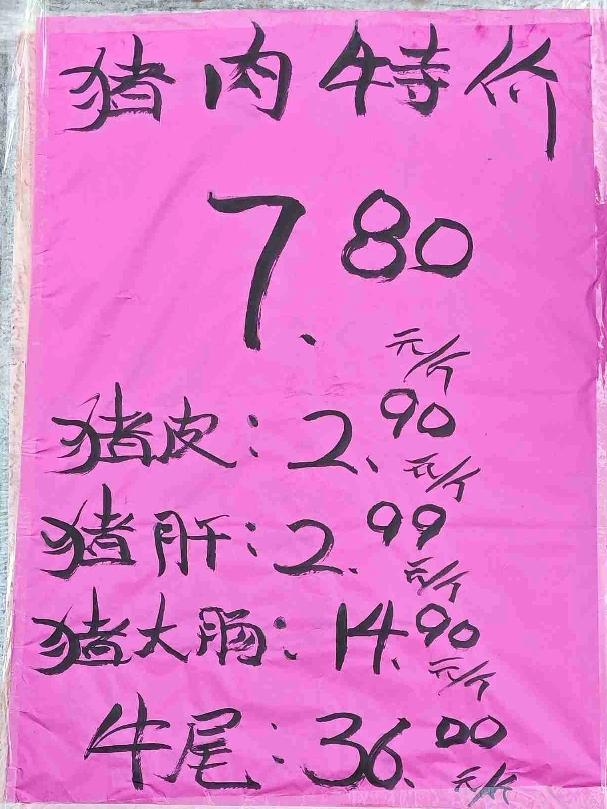 猪肉特价
7.80
元/斤
猪皮：2.90元/斤
猪肝：2.99元/斤
猪大肠：14.90元/斤
牛尾：36.00元/斤